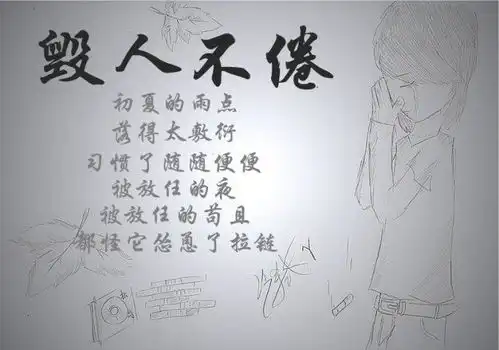 毁人不倦
初夏的雨点
落得太敷衍
习惯了随随便便
被放任的夜
被放任的苟且
都怪它怂恿了拉链